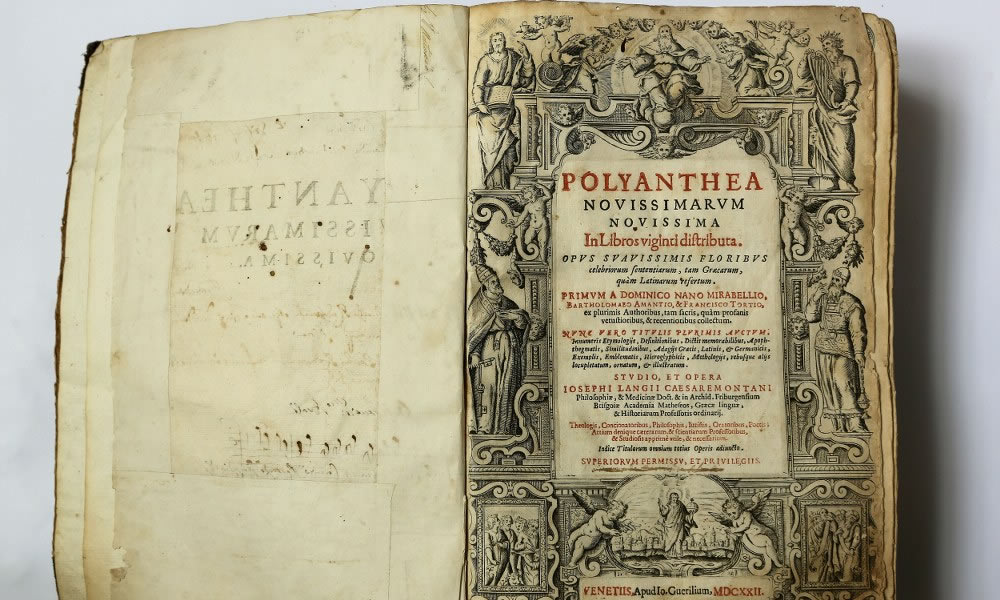 POLYANTHEA
NOVISSIMARVM
NOVISSIMA
In Libros viginti distributa.
OPVS SVAVISSIMIS FLORIBVS
celebriorum sententiarum, tam Græcarum,
quàm Latinarum refertum.
PRIMVM A DOMINICO NANO MIRABELLIO,
BARTHOLOMÆO AMANTIO, & FRANCISCO TORTIO,
ex plurimis Authoribus, tam sacris, quàm profanis
vetustioribus, & recentioribus collectum.
NVNC VERO TITVLIS PLVRIMIS AVCTVM,
Innumeris Etymologijs, Definitionibus, Dictis memorabilibus, Apoph-
thegmatis, Similitudinibus, Adagijs Græcis, Latinis, & Germanicis,
Exemplis, Emblematis, Hieroglyphicis, Mythologijs, rebusque alijs
locupletatum, ornatum, & illustratum.
STVDIO, ET OPERA
IOSEPHI LANGII CAESAREMONTANI
Philosophiæ, & Medicinæ Doct. & in Archid. Friburgensium
Brisgoiæ Academia Matheseos, Græcæ linguæ,
& Historiarum Professoris ordinarij.
Theologis, Concionatoribus, Philosophis, Iuristis, Oratoribus, Poetis:
Artium denique cæterarum, & scientiarum Professoribus,
& Studiosis apprimè vtile, & necessarium.
Indice Titulorum omnium totius Operis adiuncto.
SVPERIORVM PERMISSV, ET PRIVILEGIIS.
VENETIIS, Apud Io. Guerilium, MDCXXII.
YANTHEA
ISSIMARVM
OVISSIMA